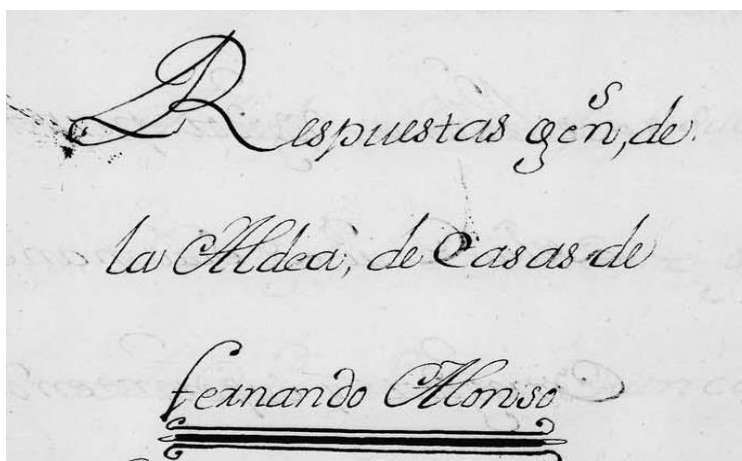 Respuestas gen̄ˢ, de
la Aldea, de Casas de
fernando Alonso